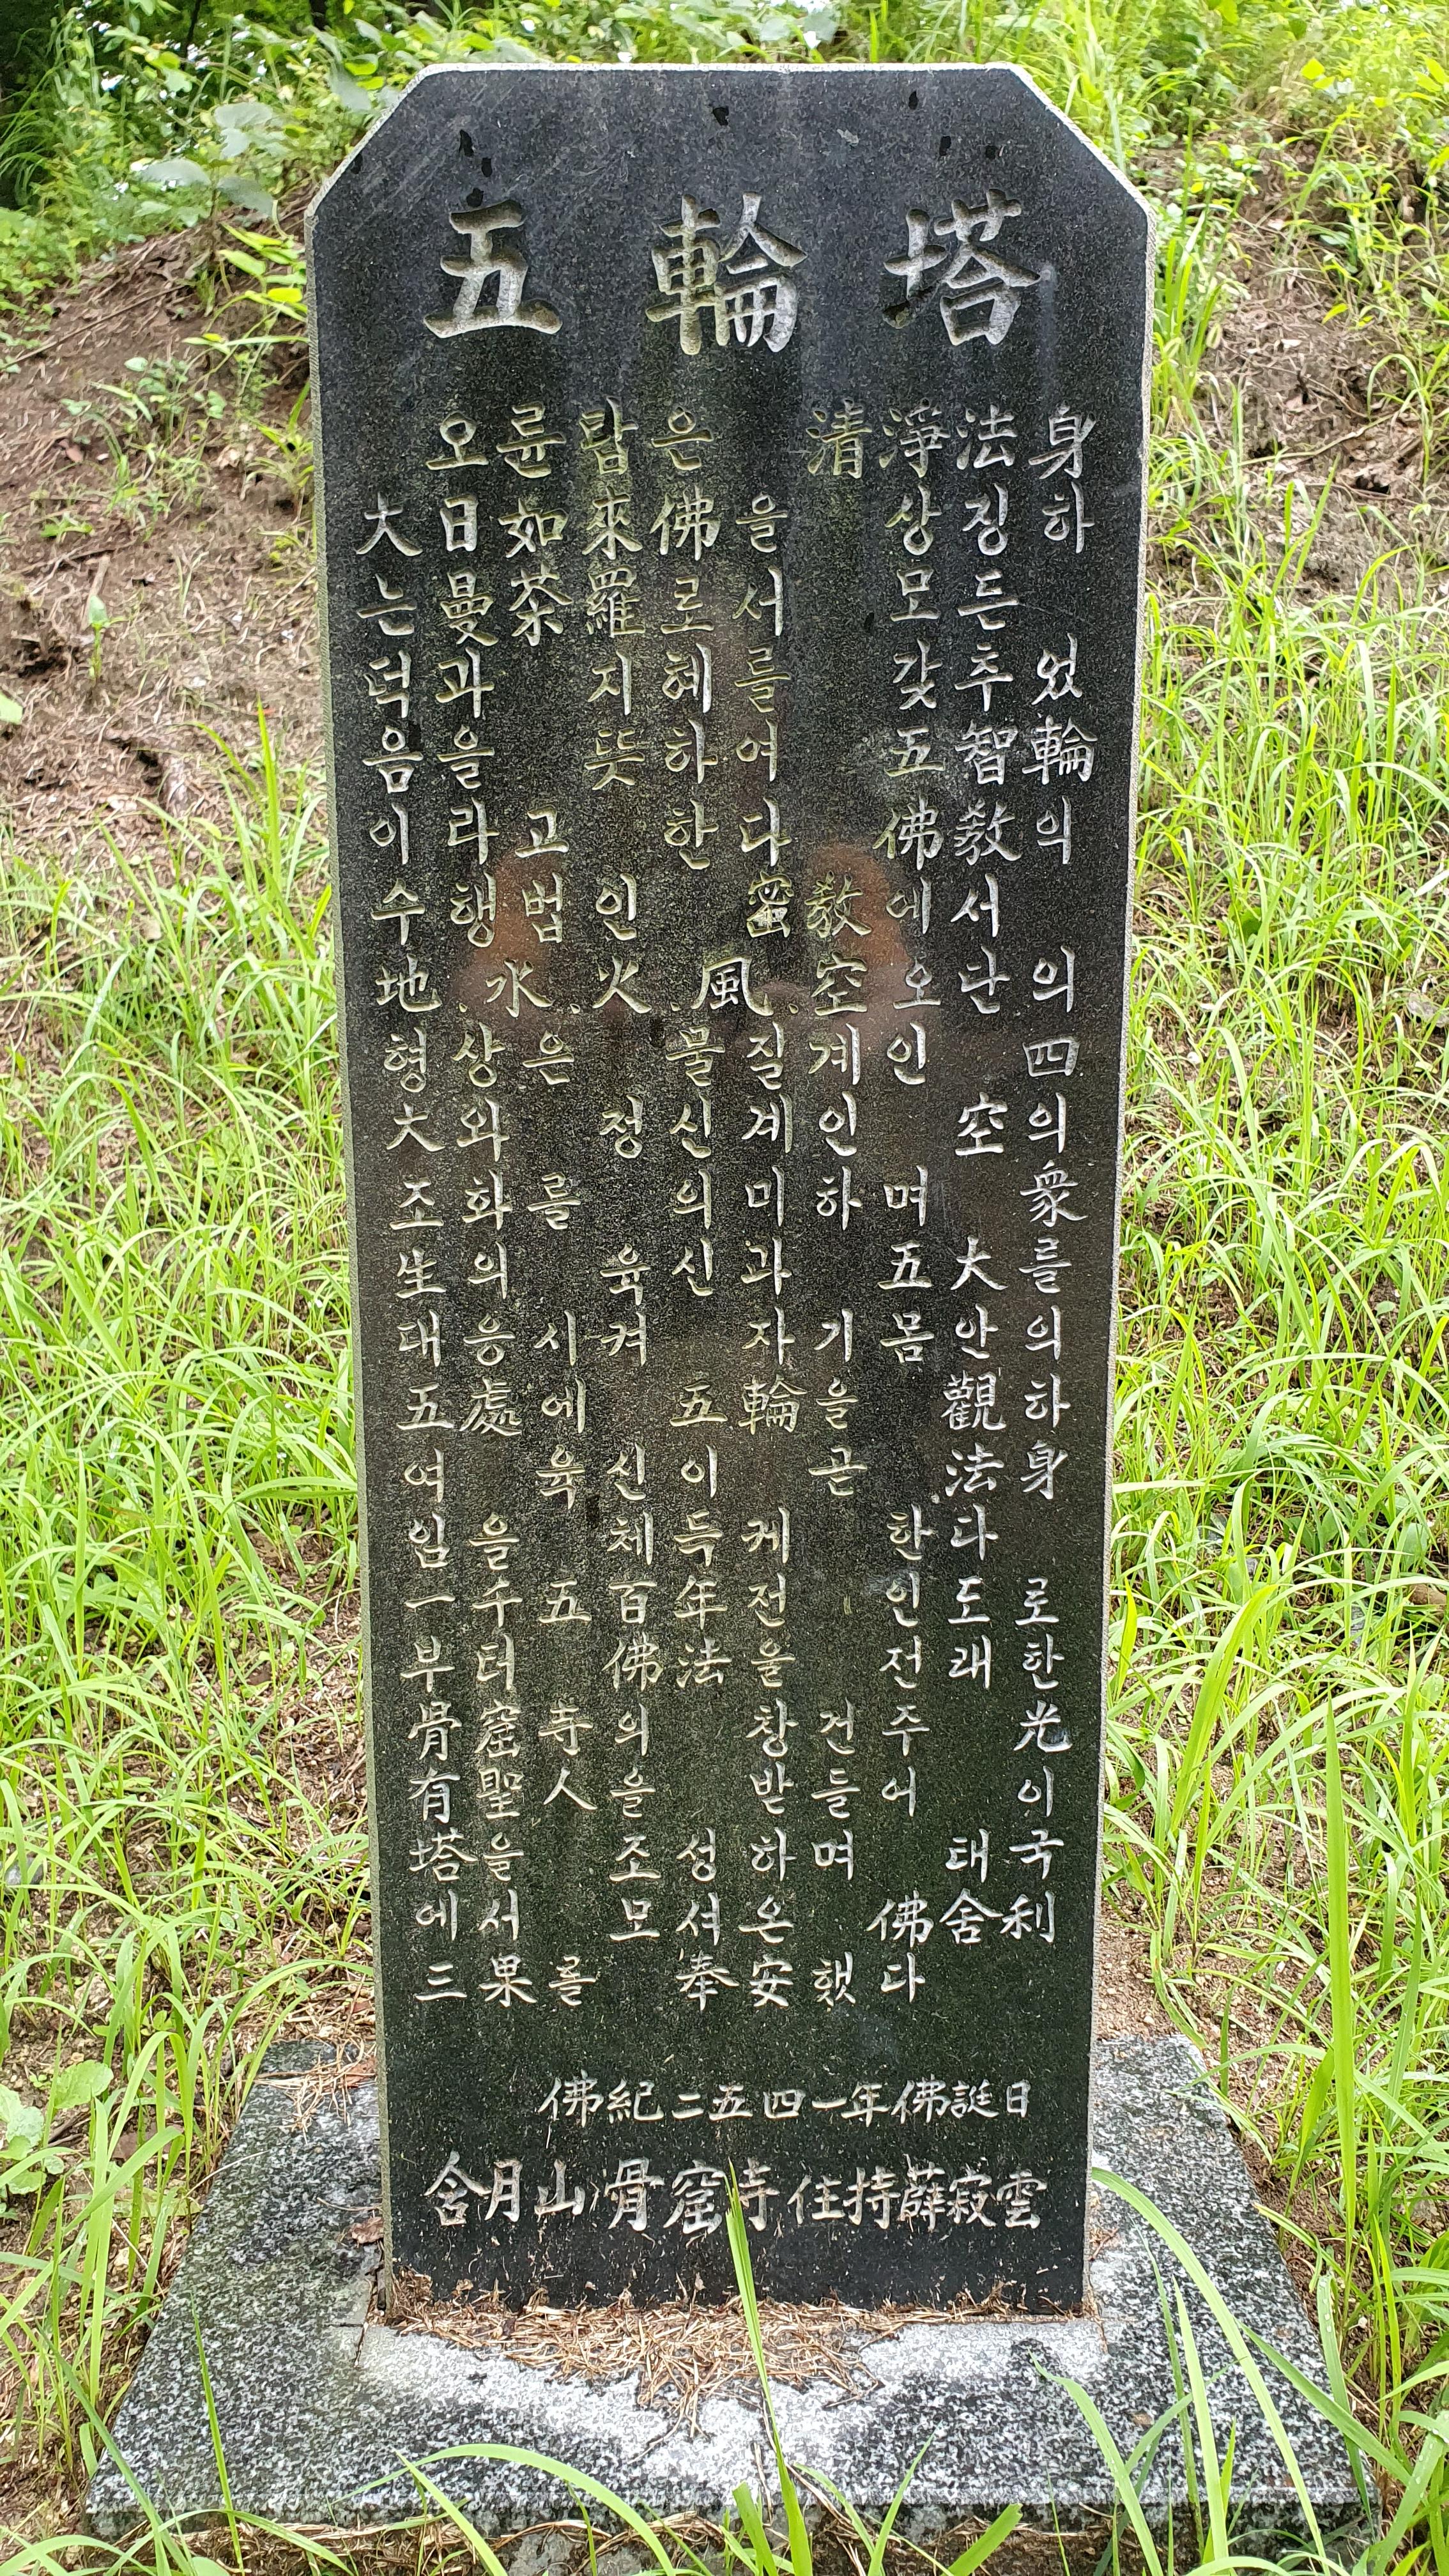 五輪塔
오륜탑은 淸淨法身
大日如來佛을 상징하
는 曼茶羅로서 모든
덕과 지혜를 갖추었
음을 뜻하여 五智輪
이라 고한다 佛敎의
수행 법인 密敎에서
地.水.火.風.空 오단의
형상은 물질계인 四
大와 정신계인 空의
조화를 의미하며 衆
生의 육신과 五大를
대응시켜 자기몸안의
五處에 五輪을 觀하
여 육신이 곧 法身
임을 체득케 한다
一千五百年전 인도로
부터 佛法을 전래한
骨窟寺의 창건주 光
有聖人을 받들어 이
塔을 조성하며 태국
에서 모셔온 佛舍利
三果를 奉安했다
佛紀二五四一年佛誕日
含月山 骨窟寺 住持 薛寂雲